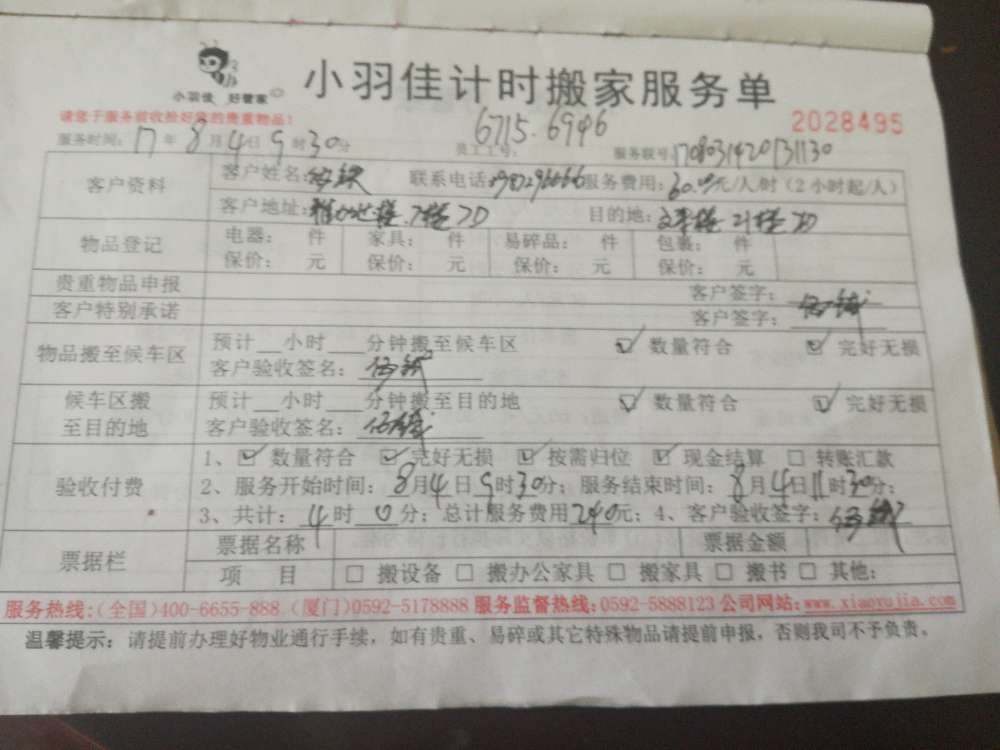 小羽佳 好管家
小羽佳计时搬家服务单
请您于服务前收捡好您的贵重物品!
6715.6946
2028495
服务时间: 17 年 8 月 4 日 9 时 30 分 员工工号: 服务联号:
客户资料 客户姓名: 联系电话: 服务费用: 60.00 元/人/时 (2小时起/人)
客户地址: 7D 目的地: 21楼 7D
物品登记 电器: 件 家具: 件 易碎品: 件 包裹: 件
保价: 元 保价: 元 保价: 元 保价: 元
贵重物品申报 客户签字:
客户特别承诺 客户签字:
物品搬至候车区 预计__小时___分钟搬至候车区 ☑ 数量符合 ☑ 完好无损
客户验收签名:
候车区搬至目的地 预计__小时___分钟搬至目的地 ☑ 数量符合 ☑ 完好无损
客户验收签名:
验收付费 1、☑ 数量符合 ☑ 完好无损 ☑ 按需归位 ☑ 现金结算 □ 转账汇款
2、服务开始时间: 8 月 4 日 9 时 30 分; 服务结束时间: 8 月 4 日 11 时 30 分;
3、共计: 4 时 0 分; 总计服务费用 240 元; 4、客户验收签字:
票据栏 票据名称 票据金额
项 目 □ 搬设备 □ 搬办公家具 □ 搬家具 □ 搬书 □ 其他:
服务热线:(全国)400-6655-888.(厦门)0592-5178888 服务监督热线:0592-5888123 公司网站:www.xiaoyujia.com
温馨提示: 请提前办理好物业通行手续,如有贵重、易碎或其它特殊物品请提前申报,否则我司不予负责。